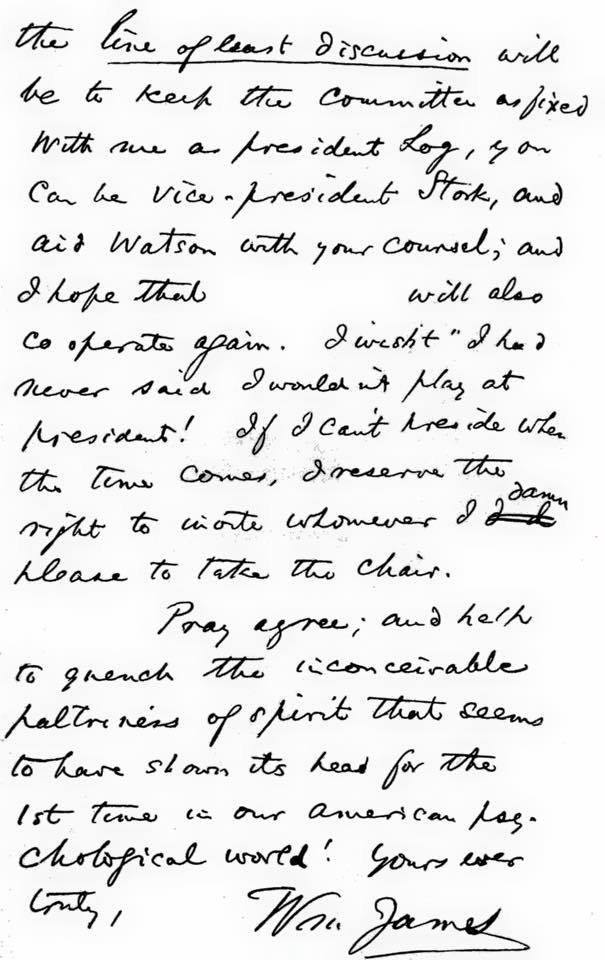 the line of least discussion will
be to keep the committee as fixed
With me as president Log, you
Can be Vice-president Stork, and
aid Watson with your counsel; and
I hope that will also
cooperate again. I wish't "I had
never said I wouldn't play at
president! If I can't preside when
the time comes, I reserve the
right to invite whomever I damn
please to take the chair.
Pray agree; and help
to quench the inconceivable
paltriness of spirit that seems
to have shown its head for the
1st time in our American psy-
chological world! Yours ever
truly,
Wm. James